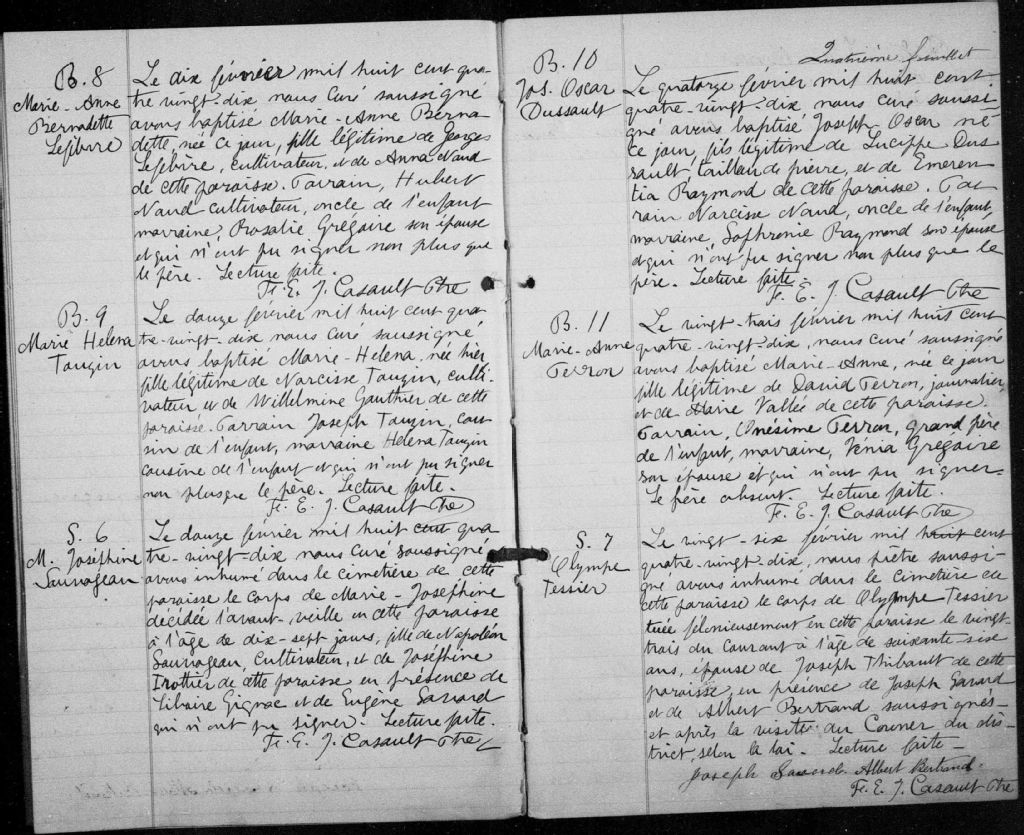 B. 8
Marie-Anne
Bernadette
Lefebvre
Le dix février mil huit cent qua-
tre vingt-dix nous Curé soussigné
avons baptisé Marie-Anne Berna
dette, née ce jour, fille légitime de Georges
Lefebvre, cultivateur, et de Anna Naud
de cette paroisse. Parrain, Hubert
Naud cultivateur, oncle de l'enfant
marraine, Rosalie Grégoire son épouse
et qui n'ont pu signer non plus que
le père. Lecture faite.
F. E. J. Casault Ptre
B. 9
Marie Helena
Paugin
Le douze février mil huit cent qua-
tre-vingt-dix nous Curé soussigné
avons baptisé Marie-Helena, née hier,
fille légitime de Narcisse Paugin, culti-
vateur et de Willelmine Gauthier de cette
paroisse. Parrain Joseph Paugin, cou-
sin de l'enfant, marraine Helena Paugin
cousine de l'enfant et qui n'ont pu signer
non plus que le père. Lecture faite.
F. E. J. Casault Ptre
S. 6
M. Joséphine
Sauvageau
Le douze février mil huit cent qua-
tre-vingt-dix nous Curé soussigné
avons inhumé dans le cimetière de cette
paroisse le corps de Marie-Joséphine
décédée l'avant-veille en cette paroisse
à l'âge de dix-sept jours, fille de Napoléon
Sauvageau, Cultivateur, et de Joséphine
Trottier de cette paroisse en présence de
Libaire Gignac et de Eugène Savard
qui n'ont pu signer. Lecture faite.
F. E. J. Casault Ptre
Quatrième feuillet
B. 10
Jos. Oscar
Dussault
Le quatorze février mil huit cent
quatre-vingt-dix nous curé soussi-
gné avons baptisé Joseph-Oscar né
ce jour, fils légitime de Lucippe Dus
sault, tailleur de pierre, et de Emeren
tia Raymond de cette paroisse. Par
rain Narcisse Naud, oncle de l'enfant,
marraine, Sophronie Raymond son épouse
et qui n'ont pu signer non plus que le
père. Lecture faite.
F. E. J. Casault Ptre
B. 11
Marie-Anne
Perron
Le vingt-trois février mil huit cent
quatre-vingt-dix, nous curé soussigné
avons baptisé Marie-Anne, née ce jour
fille légitime de David Perron, journalier,
et de Marie Vallée de cette paroisse.
Parrain, Onésime Perron, grand père
de l'enfant, marraine, Xénia Grégoire
son épouse et qui n'ont pu signer.
Le père absent. Lecture faite.
F. E. J. Casault Ptre
S. 7
Olympe
Tessier
Le vingt-six février mil huit cent
quatre-vingt-dix, nous prêtre soussi-
gné avons inhumé dans le cimetière de
cette paroisse le corps de Olympe Tessier
tuée félonieusement en cette paroisse le vingt-
trois du courant à l'âge de soixante-six
ans, épouse de Joseph Thibault de cette
paroisse, en présence de Joseph Savard
et de Albert Bertrand soussignés-
et après la visite du Coroner du dis-
trict, selon la loi. Lecture faite-
Joseph Savard Albert Bertrand.
F. E. J. Casault Ptre